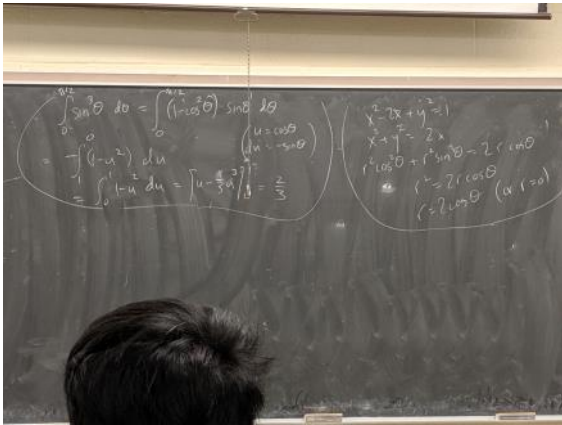 ∫₀^{π/2} sin³θ dθ = ∫₀^{π/2} (1-cos²θ) sinθ dθ
(u = cosθ
du = -sinθ)
= -∫₁⁰ (1-u²) du
= ∫₀¹ 1-u² du = [u - 1/3 u³]₀¹ = 2/3
x² - 2x + y² = 1
x² + y² = 2x
r² cos²θ + r² sin²θ = 2r cosθ
r² = 2r cosθ
r = 2cosθ (or r=0)